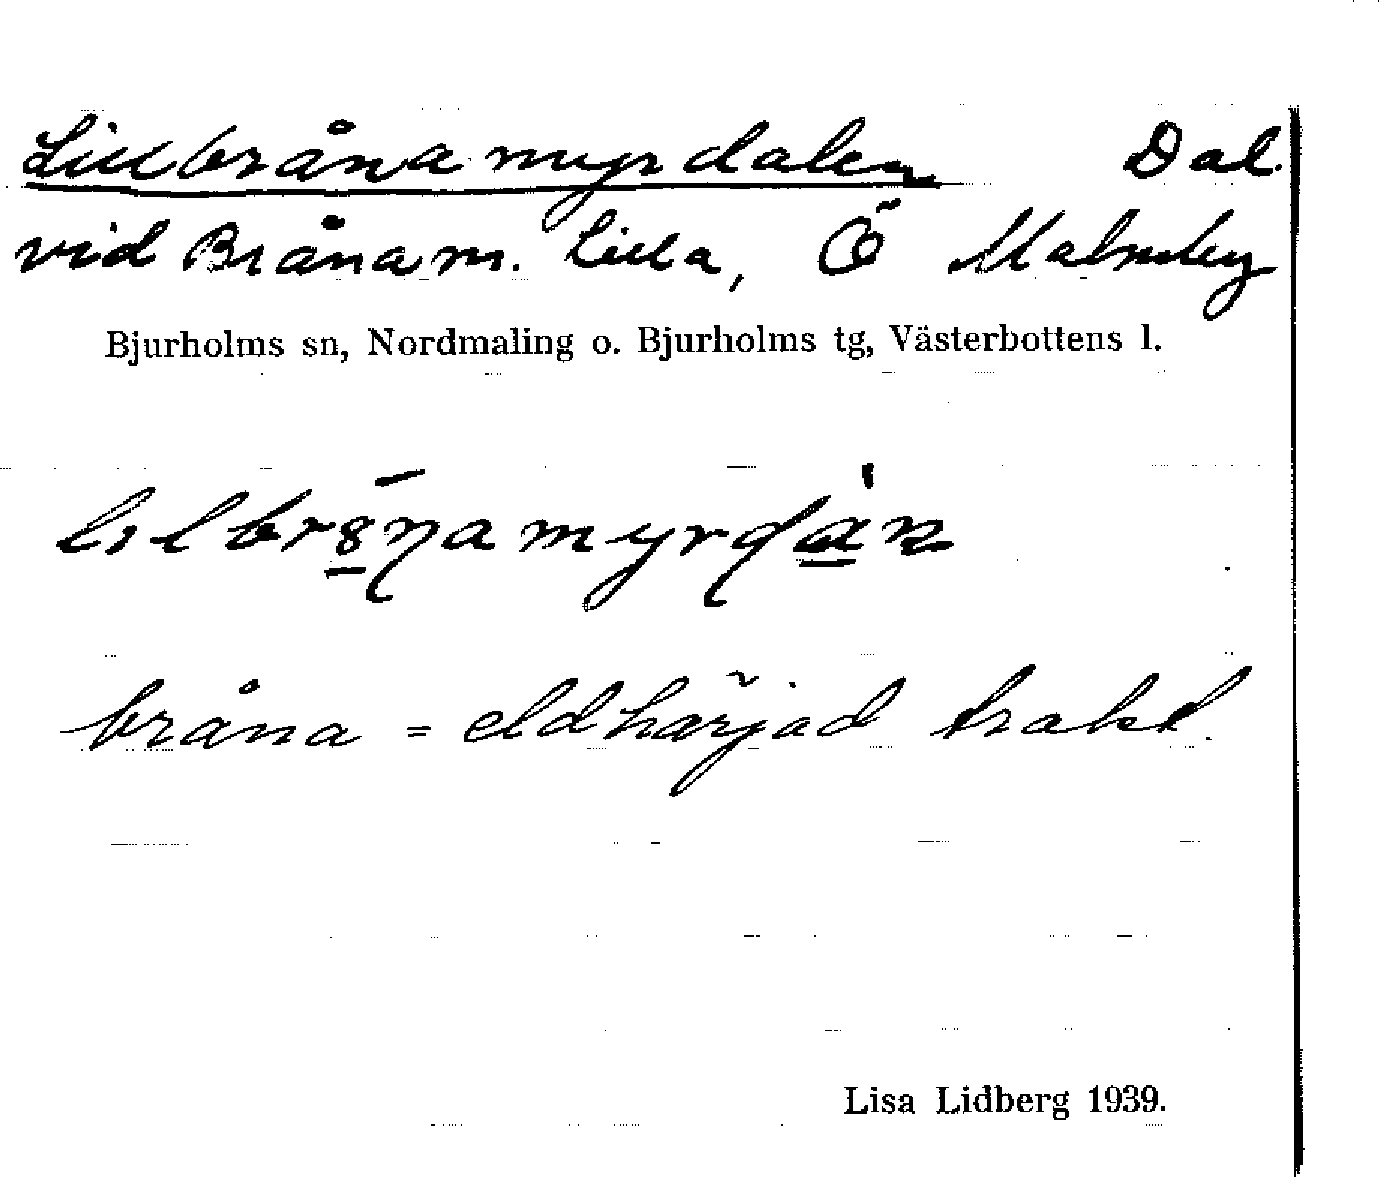 Lillbrånamyrdalen Dal
vid Brånam. Lilla, Ö Malmby
Bjurholms sn, Nordmaling o. Bjurholms tg, Västerbottens l.
bråna = eldhärjad trakt.
Lisa Lidberg 1939.